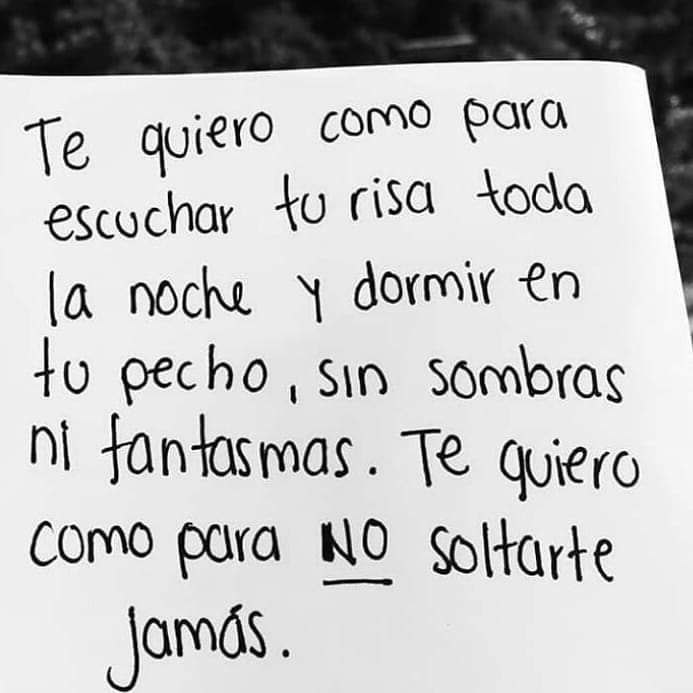 Te quiero como para
escuchar tu risa toda
la noche y dormir en
tu pecho, sin sombras
ni fantasmas. Te quiero
como para NO soltarte
jamás.